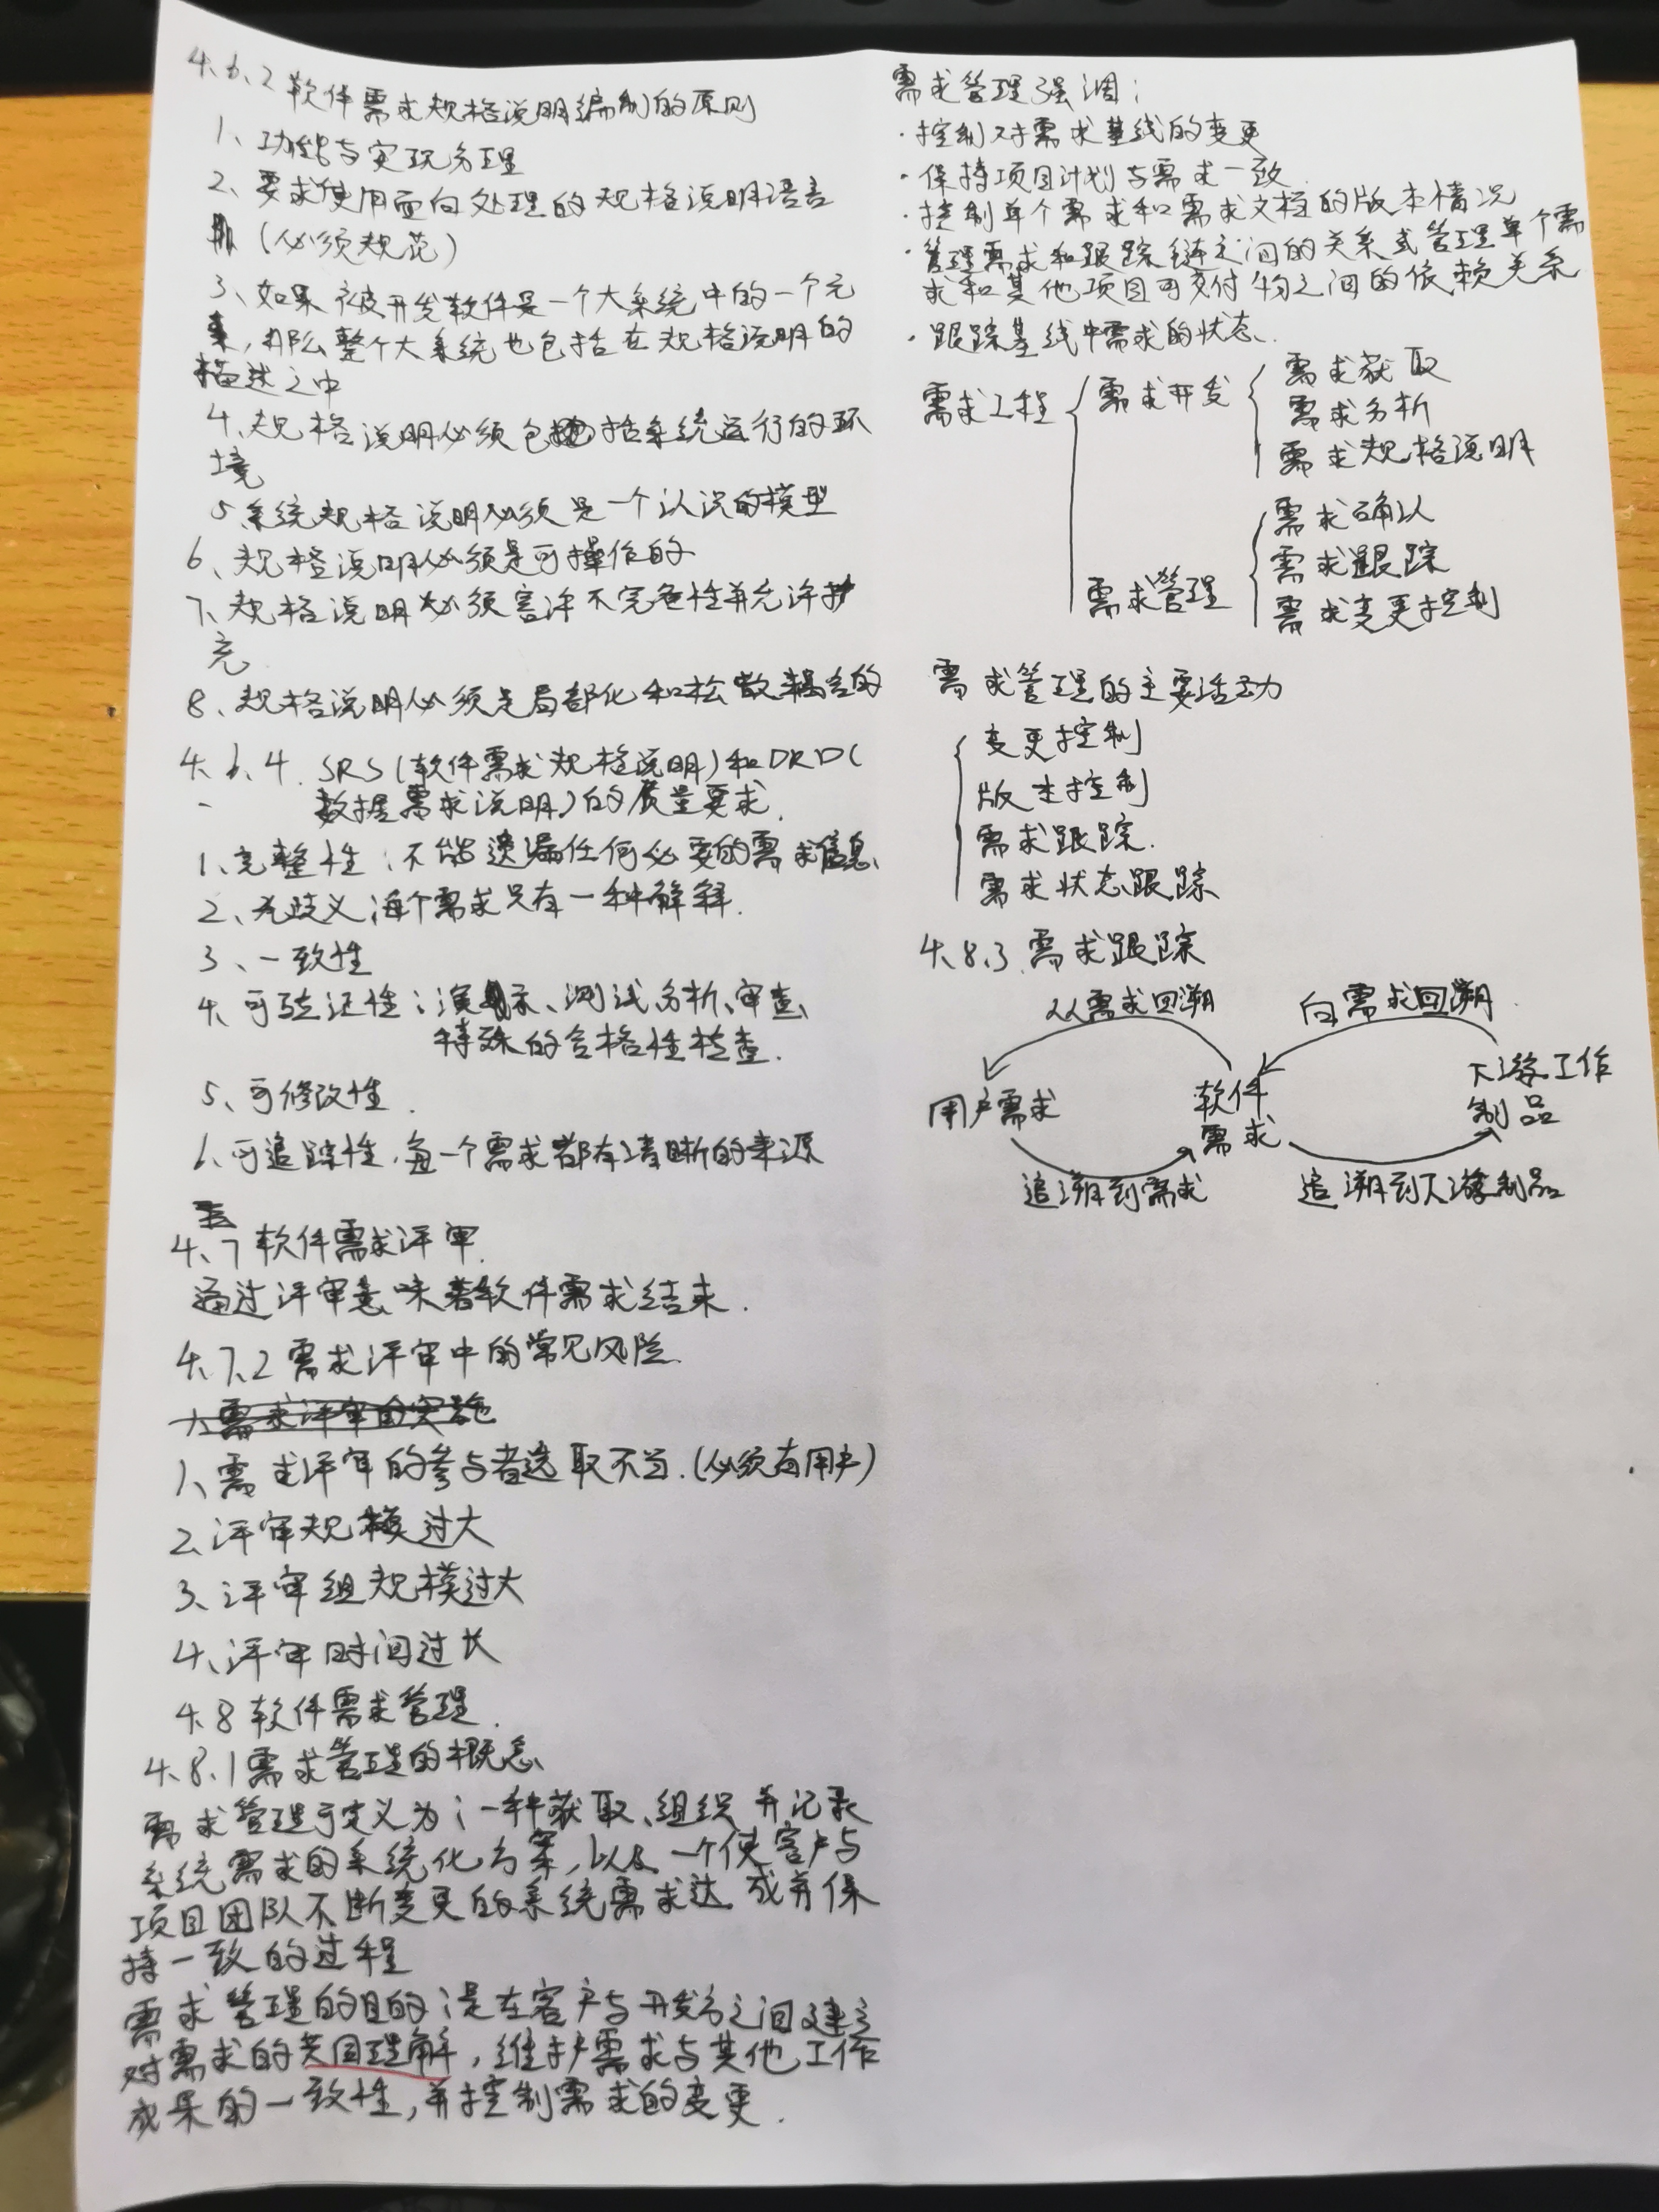 4.6.2 软件需求规格说明编制的原则
1、功能与实现分理
2、要求使用面向处理的规格说明语言
(必须规范)
3、如果被开发软件是一个大系统中的一个元
素,那么整个大系统也包括在规格说明的
描述之中
4、规格说明必须包括系统运行的环
境
5、系统规格说明必须是一个认识的模型
6、规格说明必须是可操作的
7、规格说明必须容许不完备性并允许扩
充
8、规格说明必须是局部化和松散耦合的
4.6.4 SRS(软件需求规格说明)和DRD(
数据需求说明)的质量要求.
1、完整性:不能遗漏任何必要的需求信息、
2、无歧义:每个需求只有一种解释.
3、一致性
4、可验证性:演示、测试、分析、审查、
特殊的合格性检查.
5、可修改性.
6、可追踪性.每一个需求都有清晰的来源
4.7 软件需求评审.
通过评审意味着软件需求结束.
4.7.2 需求评审中的常见风险.
1、需求评审的实施
1、需求评审的参与者选取不当.(必须有用户)
2、评审规模过大
3、评审组规模过大
4、评审时间过长
4.8 软件需求管理.
4.8.1 需求管理的概念
需求管理可定义为:一种获取、组织并记录
系统需求的系统化方案,以及一个使客户与
项目团队不断变更的系统需求达成并保
持一致的过程
需求管理的目的:是在客户与开发方之间建立
对需求的共同理解,维护需求与其他工作
成果的一致性,并控制需求的变更.
需求管理强调:
·控制对需求基线的变更
·保持项目计划与需求一致.
·控制单个需求和需求文档的版本情况
·管理需求和跟踪链之间的关系或管理单个需
求和其他项目可交付物之间的依赖关系
·跟踪基线中需求的状态.
需求工程
需求开发
需求获取
需求分析
需求规格说明
需求管理
需求确认
需求跟踪
需求变更控制
需求管理的主要活动
变更控制
版本控制
需求跟踪.
需求状态跟踪
4.8.3 需求跟踪
从需求回溯
向需求回溯.
用户需求
软件
需求
下游工作
制品
追溯到需求
追溯到下游制品